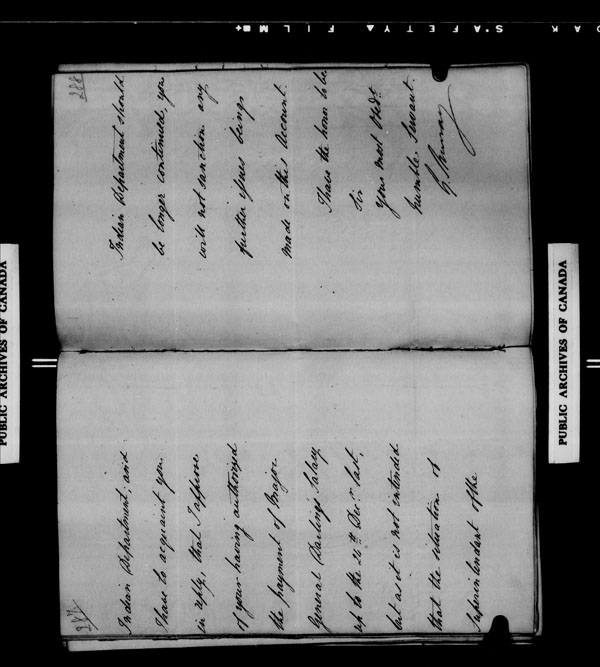 SAFETY FILM
PUBLIC ARCHIVES OF CANADA
PUBLIC ARCHIVES OF CANADA
227
Indian Department, and
I have to acquaint you
in reply, that I approve
of your having authorized
the payment of Major
General Darlings Salary
up to the 24th Decr. last,
but as it is not intended
that the situation of
Superintendent of the
228
Indian Department should
be longer continued, you
will not sanction any
further issues being
made on this account.
I have the honor to be
Sir
your most obedt
humble Servant.
G. Murray